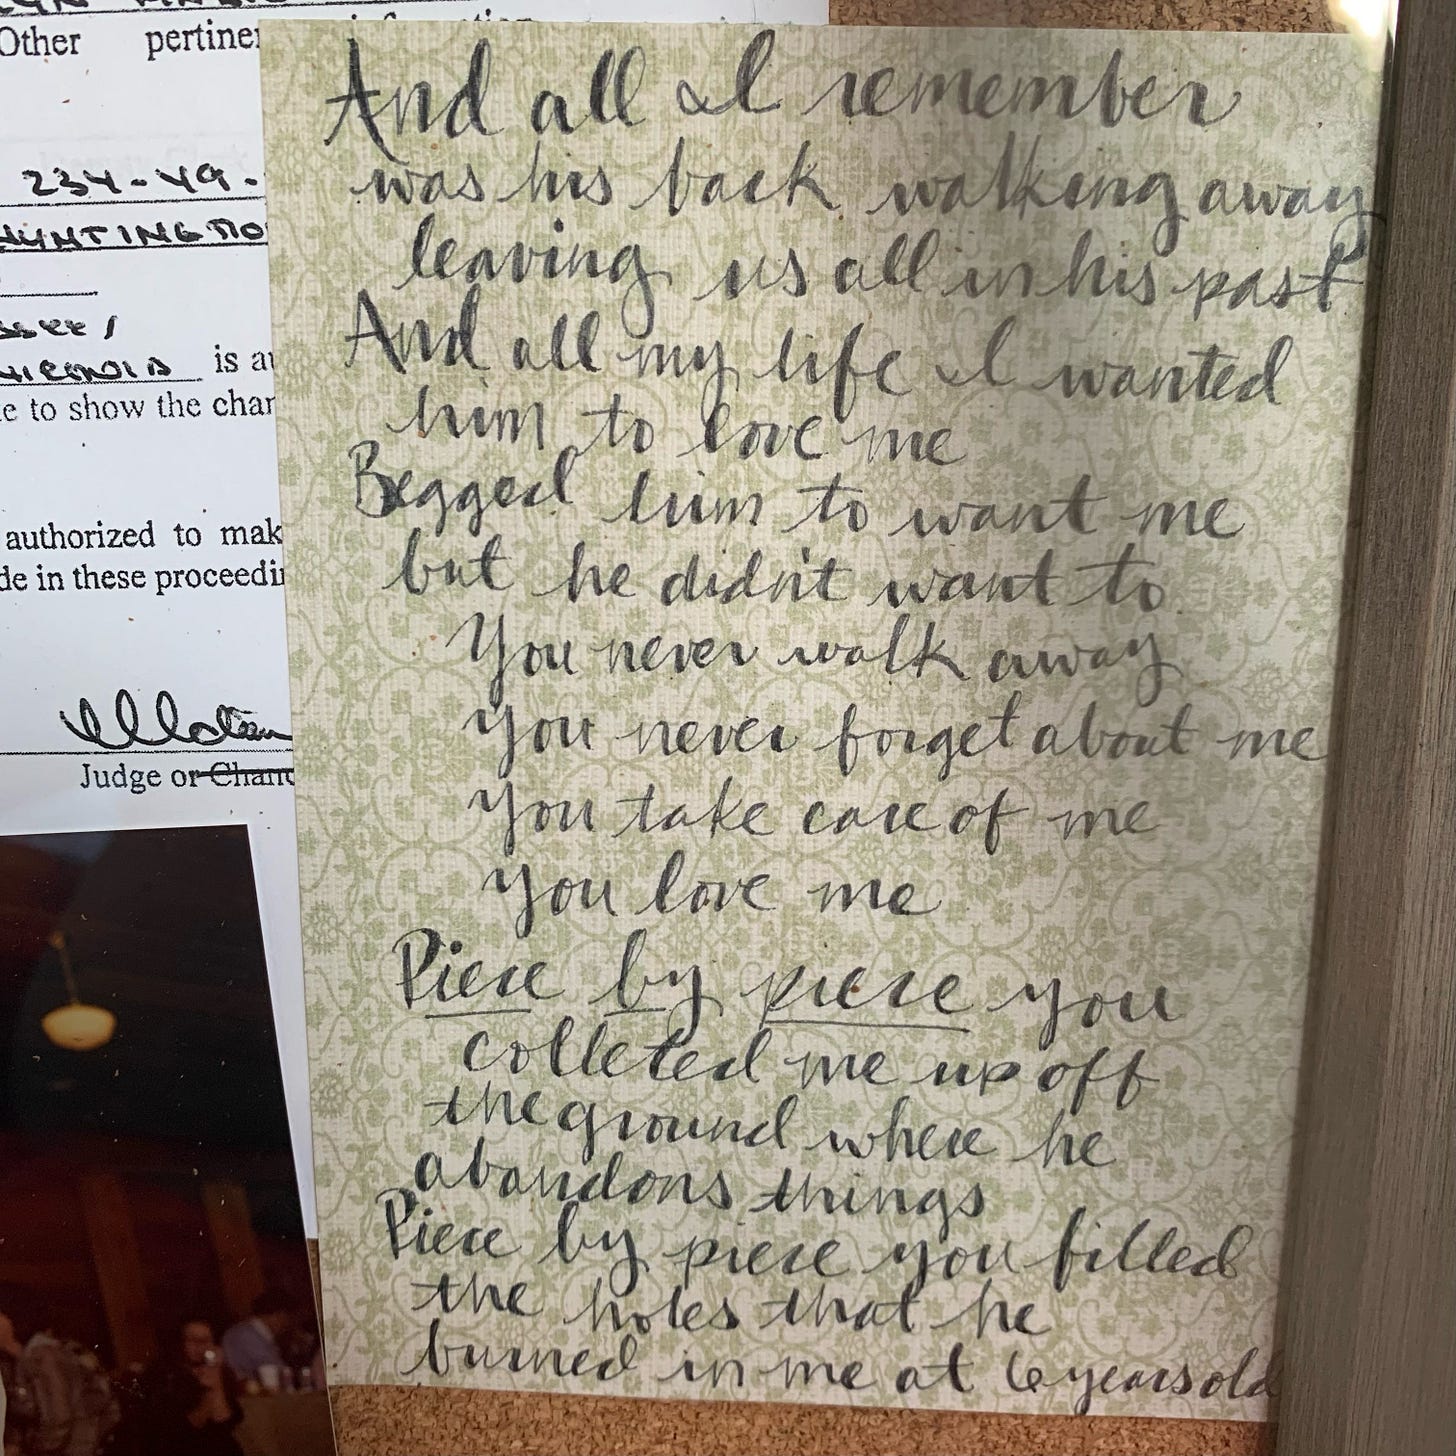 Other pertine
234-49-
HUNTINGDO
is a
e to show the char
authorized to mak
de in these proceedi
Judge or Chanc
And all I remember
was his back walking away
leaving us all in his past
And all my life I wanted
him to love me
Begged him to want me
but he didn't want to
You never walk away
You never forget about me
You take care of me
You love me
Piece by piece you
colleted me up off
the ground where he
abandons things
Piece by piece you filled
the holes that he
burned in me at 6 years old